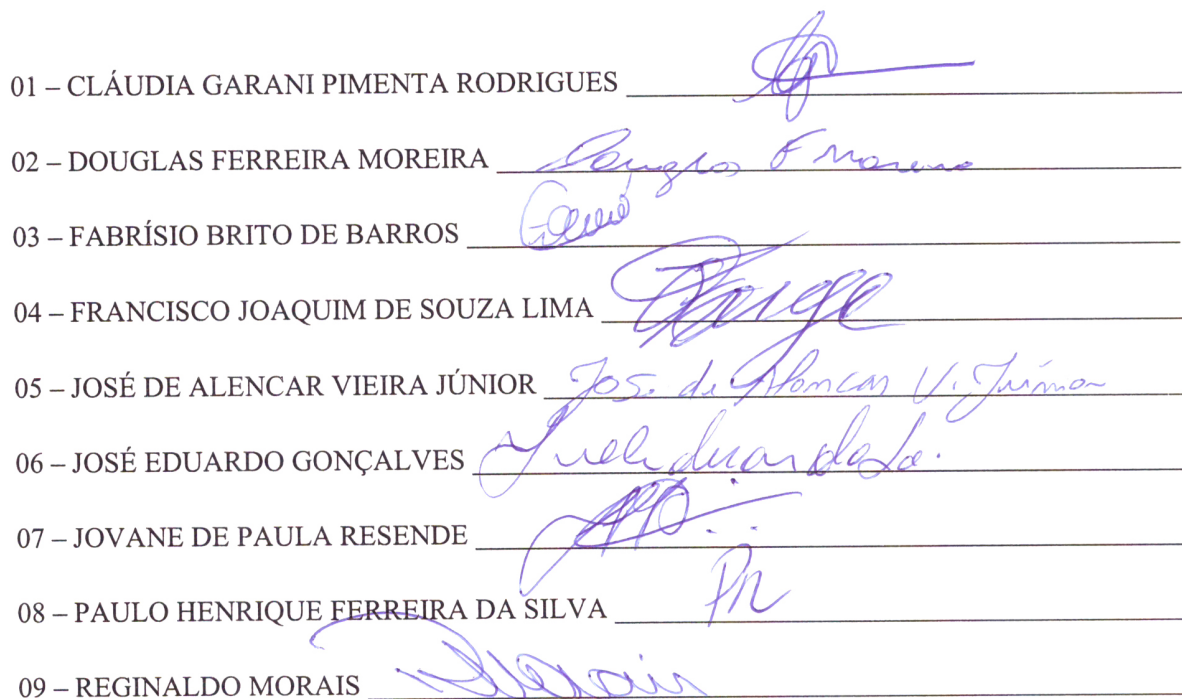 01 – CLÁUDIA GARANI PIMENTA RODRIGUES
02 – DOUGLAS FERREIRA MOREIRA Douglas F Moreira
03 – FABRÍSIO BRITO DE BARROS
04 – FRANCISCO JOAQUIM DE SOUZA LIMA
05 – JOSÉ DE ALENCAR VIEIRA JÚNIOR José de Alencar V. Júnior
06 – JOSÉ EDUARDO GONÇALVES
07 – JOVANE DE PAULA RESENDE
08 – PAULO HENRIQUE FERREIRA DA SILVA
09 – REGINALDO MORAIS